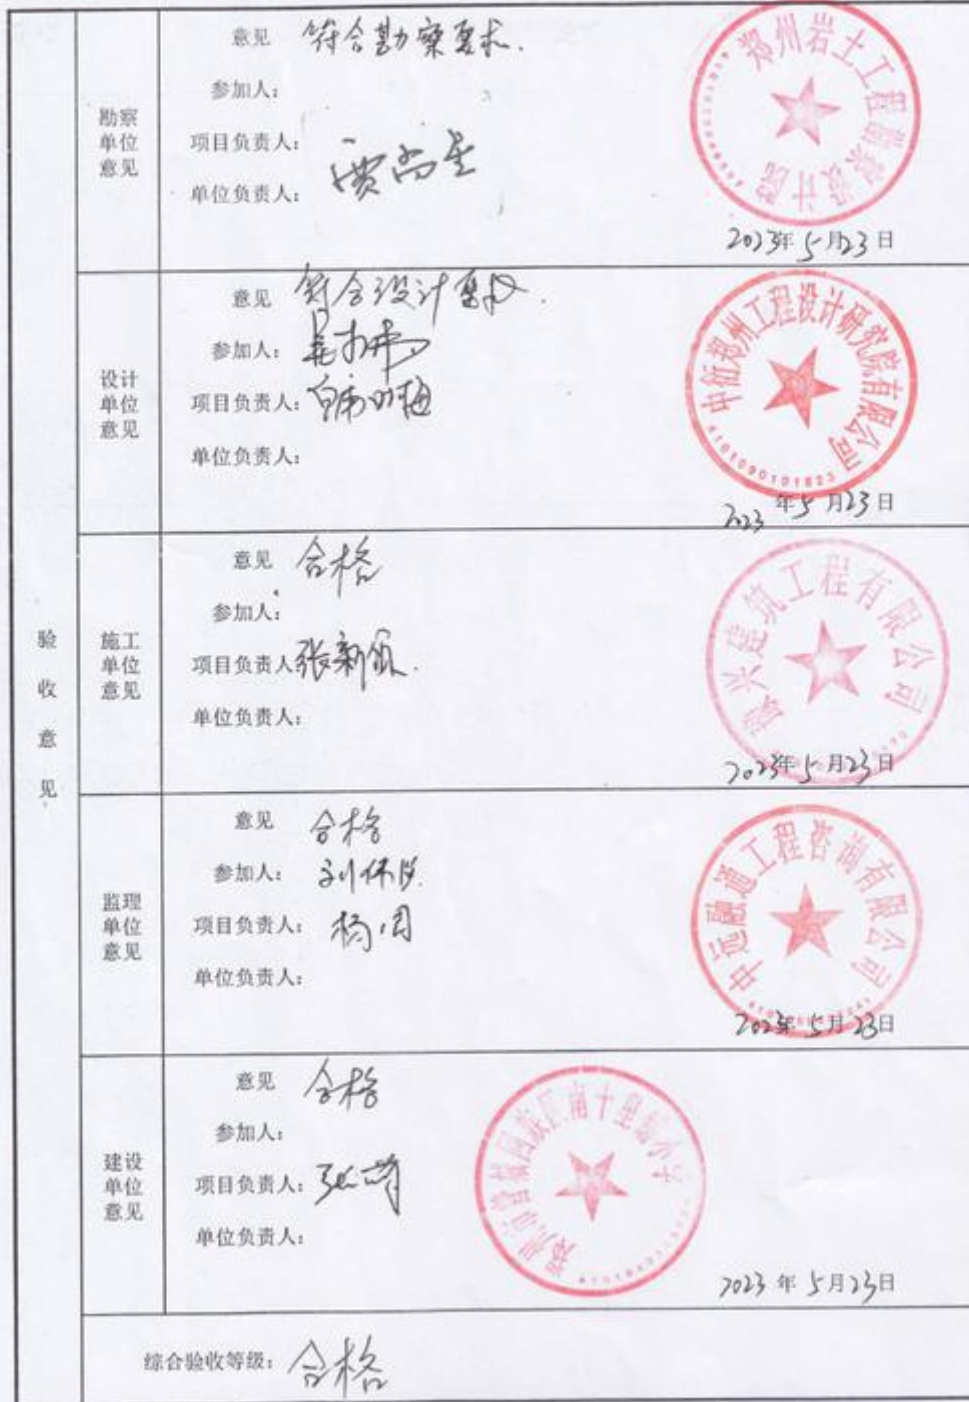 验收意见
勘察单位意见
意见 符合勘察要求.
参加人:
项目负责人:
单位负责人: 贾尚星
郑州岩土工程勘察设计院
2023年5月23日
设计单位意见
意见 符合设计要求.
参加人:
项目负责人:
单位负责人:
中衍郑州工程设计研究院有限公司
4101090101823
2023年5月23日
施工单位意见
意见 合格
参加人:
项目负责人 张新
单位负责人:
兴建筑工程有限公司
2023年5月23日
监理单位意见
意见 合格
参加人: 刘伟
项目负责人: 杨周
单位负责人:
中远融通工程咨询有限公司
2023年5月23日
建设单位意见
意见 合格
参加人:
项目负责人: 张
单位负责人:
郑州市管城回族区南十里铺小学
2023年5月23日
综合验收等级: 合格